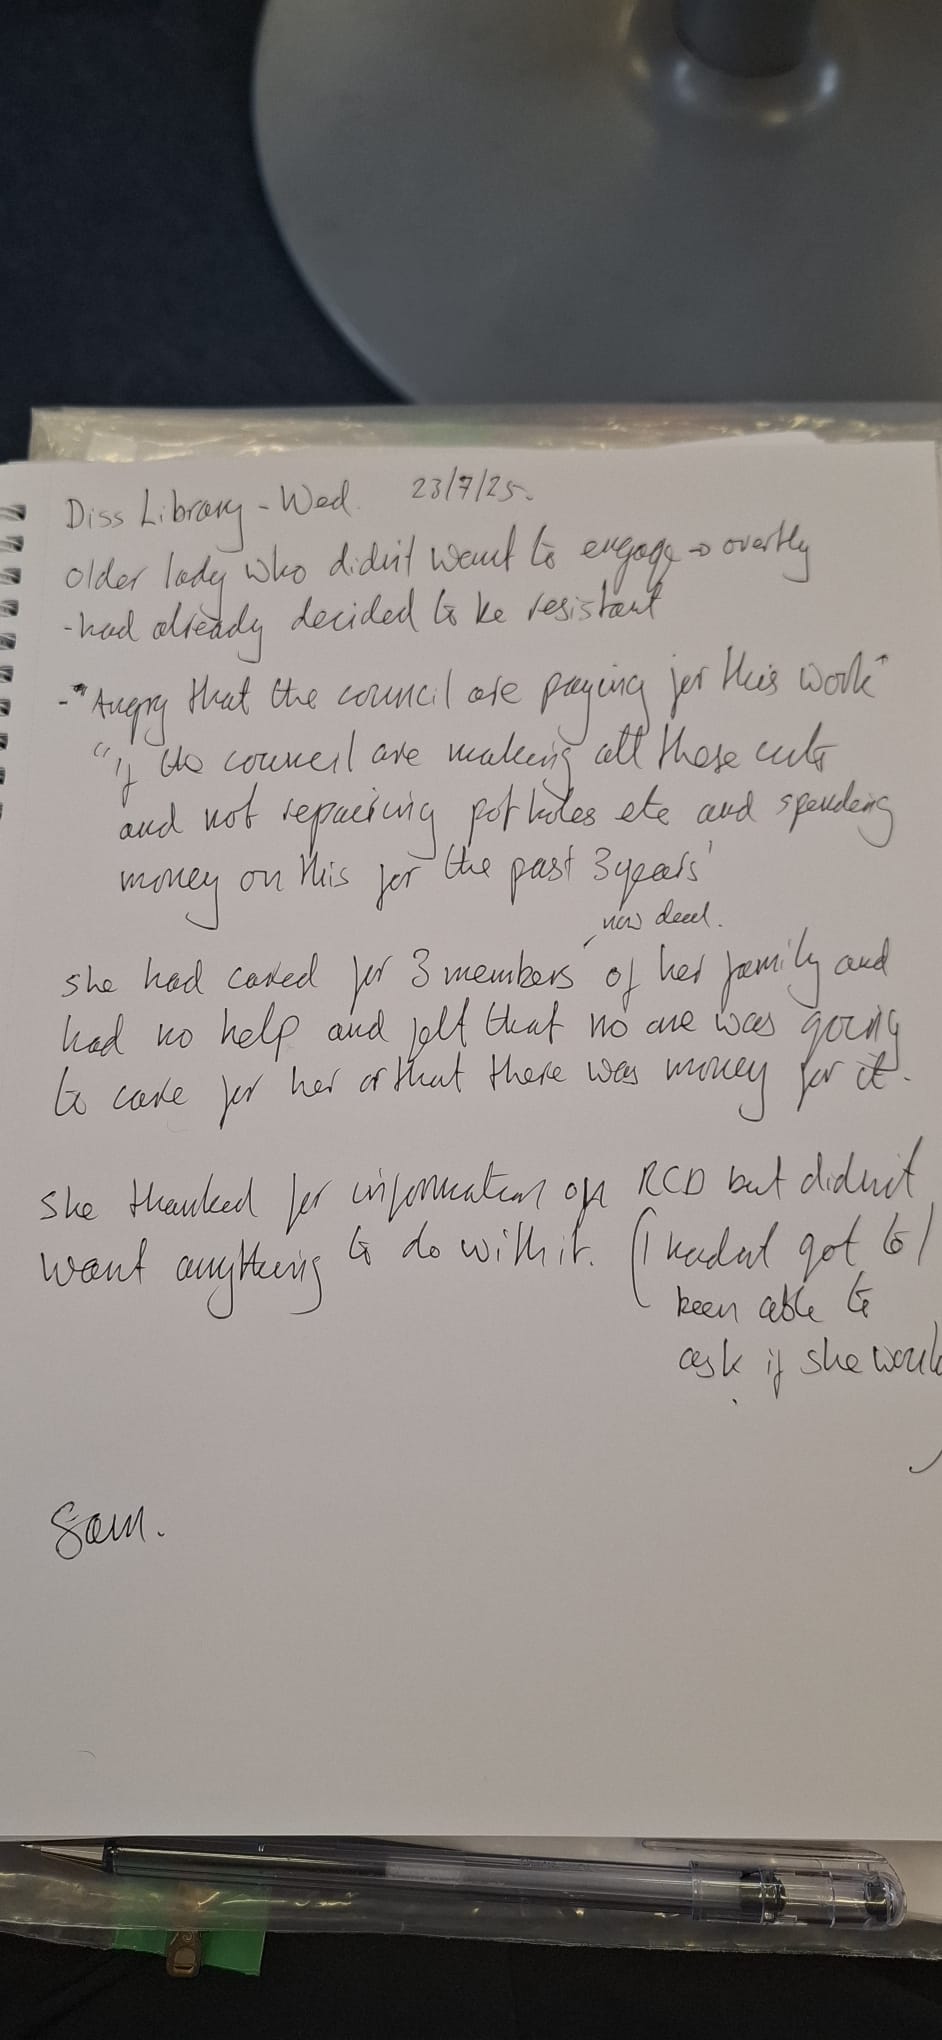 Diss Library - Wed. 23/7/25.
older lady who didn't want to engage → overtly
- had already decided to be resistant
- "Angry that the council are paying for this work"
"if the council are making all these cuts
and not repairing pot holes etc and spending
money on this for the past 3 years'
now dead.
she had cared for 3 members of her family and
had no help and felt that no one was going
to care for her or that there was money for it.
She thanked for information on RCD but didn't
want anything to do with it. (I hadn't got to /
been able to
ask if she would
)
Sam.